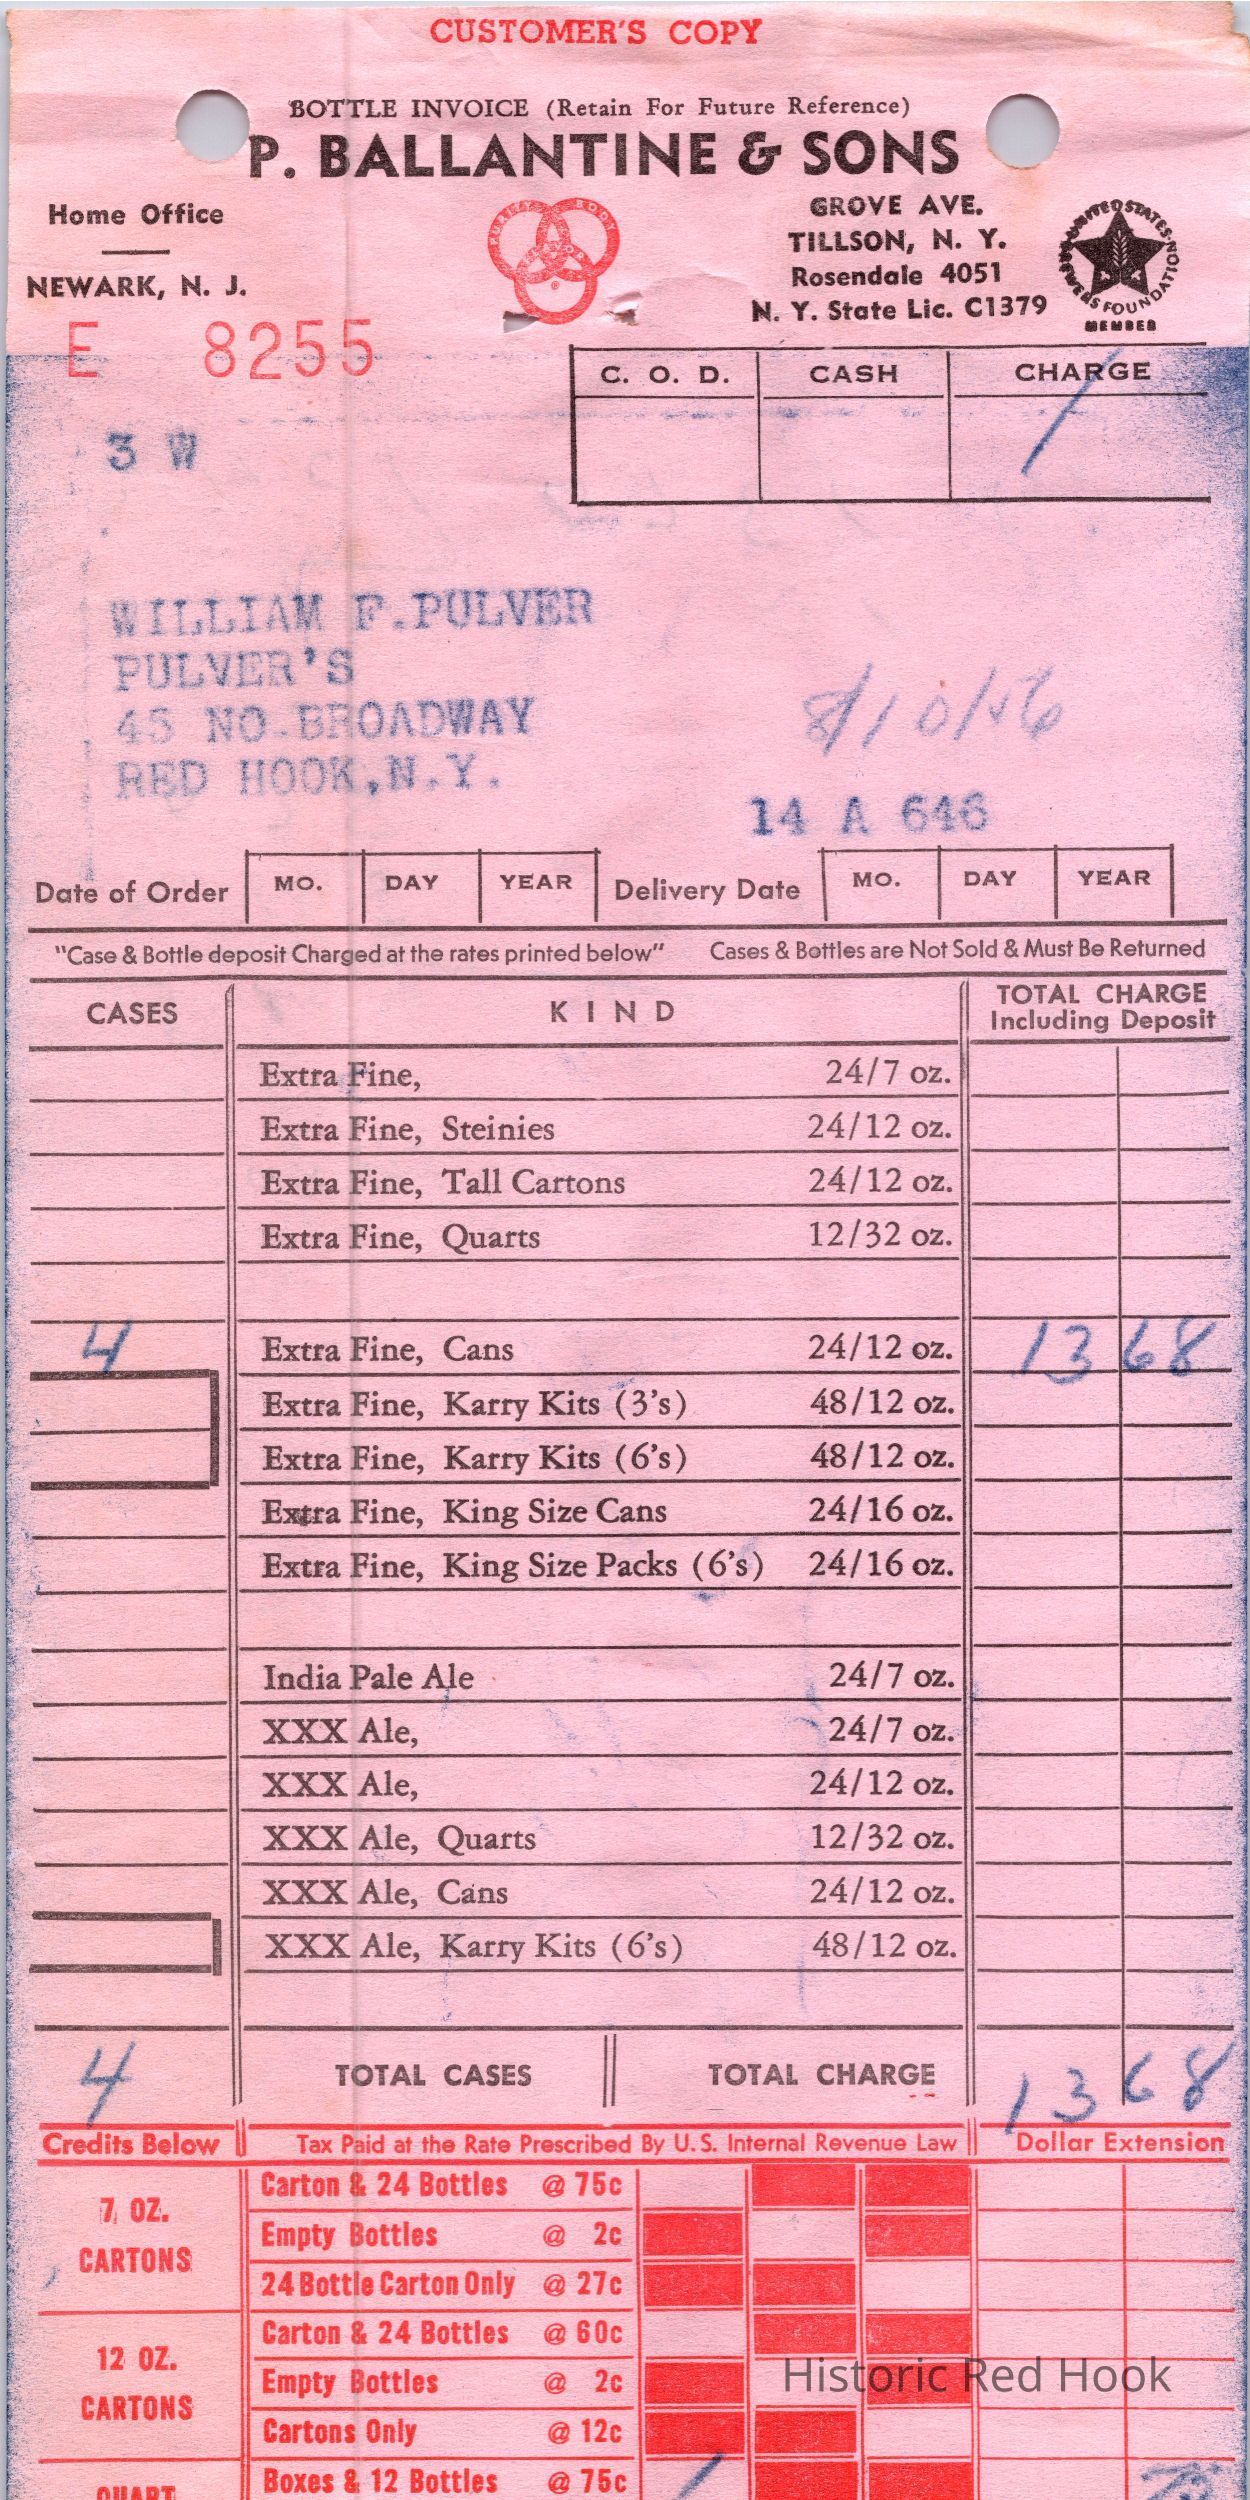 CUSTOMER'S COPY
BOTTLE INVOICE (Retain For Future Reference)
P. BALLANTINE & SONS
Home Office
NEWARK, N. J.
PURITY BODY FLAVOR
GROVE AVE.
TILLSON, N. Y.
Rosendale 4051
N. Y. State Lic. C1379
UNITED STATES BREWERS FOUNDATION
MEMBER
E 8255
C. O. D. CASH CHARGE
3 W
WILLIAM F.PULVER
PULVER'S
45 NO.BROADWAY
RED HOOK,N.Y.
8/10/56
14 A 646
Date of Order MO. DAY YEAR Delivery Date MO. DAY YEAR
"Case & Bottle deposit Charged at the rates printed below" Cases & Bottles are Not Sold & Must Be Returned
CASES KIND TOTAL CHARGE
Including Deposit
Extra Fine, 24/7 oz.
Extra Fine, Steinies 24/12 oz.
Extra Fine, Tall Cartons 24/12 oz.
Extra Fine, Quarts 12/32 oz.
4 Extra Fine, Cans 24/12 oz. 13 68
Extra Fine, Karry Kits (3's) 48/12 oz.
Extra Fine, Karry Kits (6's) 48/12 oz.
Extra Fine, King Size Cans 24/16 oz.
Extra Fine, King Size Packs (6's) 24/16 oz.
India Pale Ale 24/7 oz.
XXX Ale, 24/7 oz.
XXX Ale, 24/12 oz.
XXX Ale, Quarts 12/32 oz.
XXX Ale, Cans 24/12 oz.
XXX Ale, Karry Kits (6's) 48/12 oz.
4 TOTAL CASES TOTAL CHARGE 13 68
Credits Below Tax Paid at the Rate Prescribed By U.S. Internal Revenue Law Dollar Extension
7 OZ.
CARTONS
Carton & 24 Bottles @ 75c
Empty Bottles @ 2c
24 Bottle Carton Only @ 27c
12 OZ.
CARTONS
Carton & 24 Bottles @ 60c
Empty Bottles @ 2c
Cartons Only @ 12c
Historic Red Hook
QUART
Boxes & 12 Bottles @ 75c 1 75